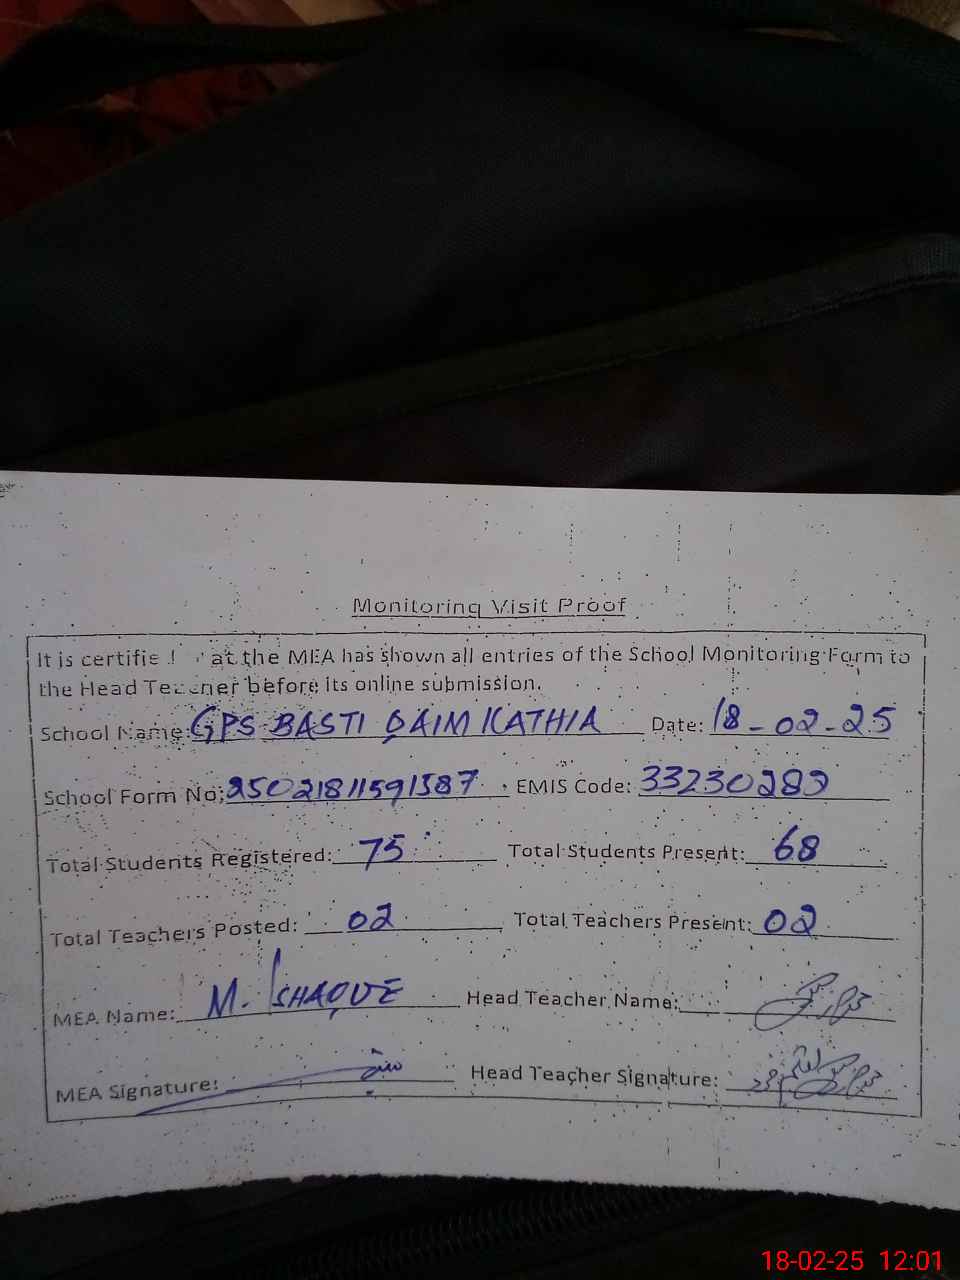 Monitoring Visit Proof
It is certifie at the MEA has shown all entries of the School Monitoring Form to
the Head Teacher before its online submission.
School Name: GPS BASTI QAIM KATHIA Date: 18-02-25
School Form No: 25021811591587 EMIS Code: 33230282
Total Students Registered: 75 Total Students Present: 68
Total Teachers Posted: 02 Total Teachers Present: 02
MEA Name: M. ISHAQUE Head Teacher Name:
MEA Signature: Head Teacher Signature:
18-02-25 12:01